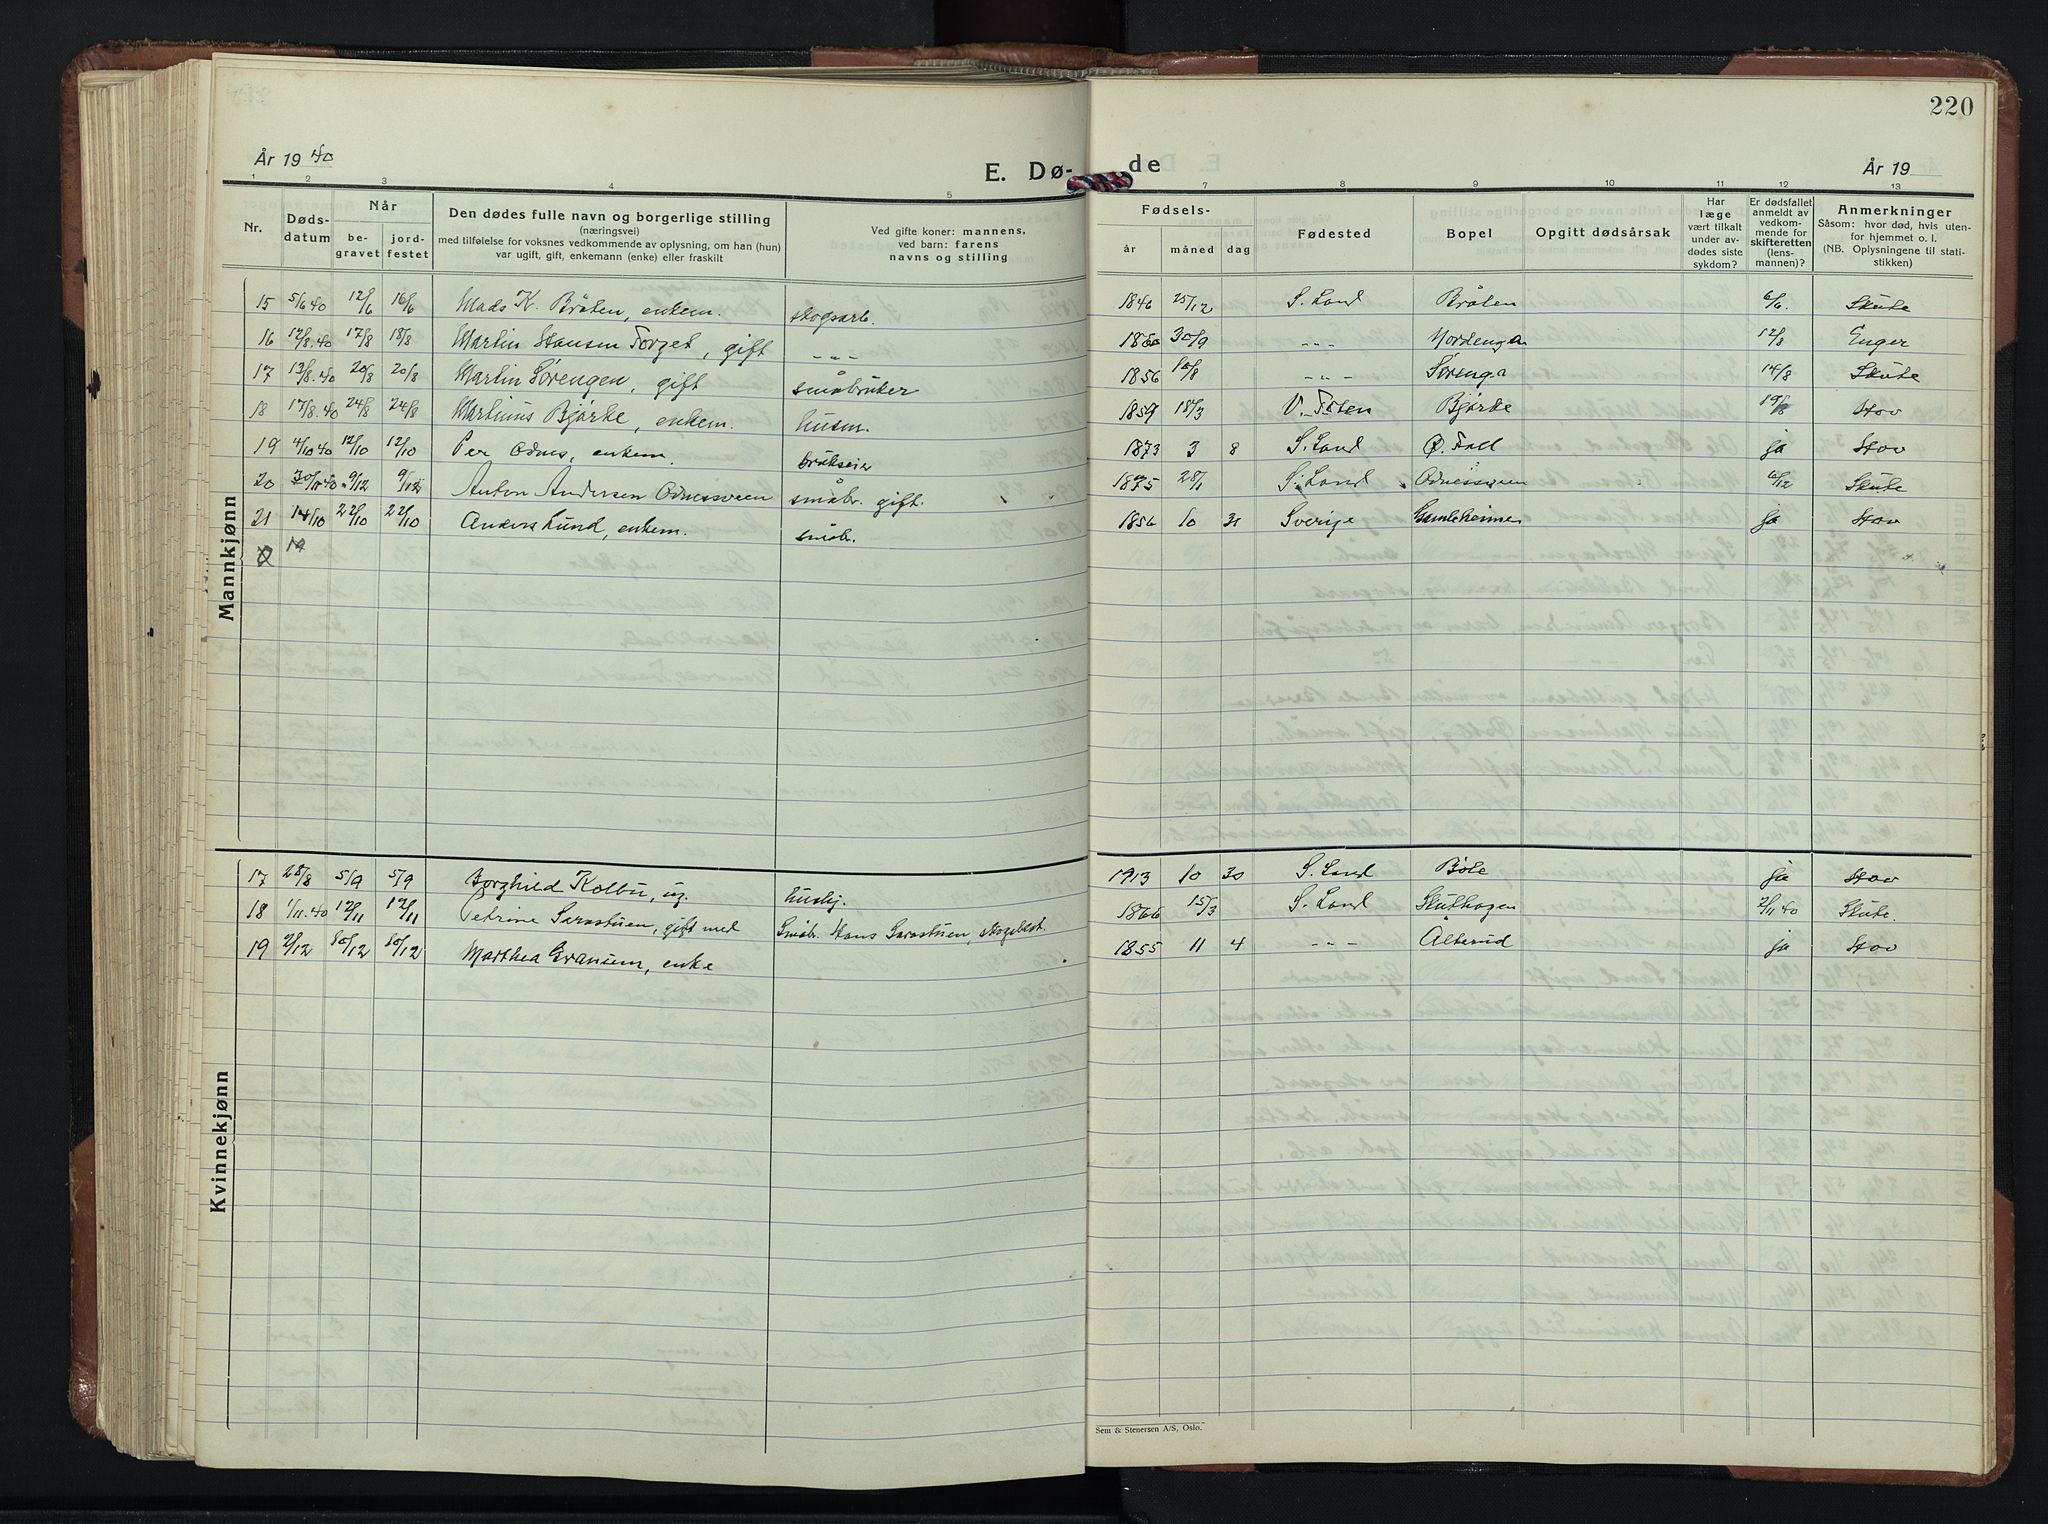 220
År 19 40
E. Dø- de
År 19
1 2 3 4 5 7 8 9 10 11 12 13
Nr.
Døds-
datum
Når
be-
gravet
jord-
festet
Den dødes fulle navn og borgerlige stilling
(næringsvei)
med tilføielse for voksnes vedkommende av oplysning, om han (hun)
var ugift, gift, enkemann (enke) eller fraskilt
Ved gifte koner: mannens,
ved barn: farens
navns og stilling
Fødsels-
år måned dag
Fødested
Bopel
Opgitt dødsårsak
Har
læge
vært tilkalt
under av-
dødes siste
sykdom?
Er dødsfallet
anmeldt av
vedkom-
mende for
skifteretten
(lens-
mannen)?
Anmerkninger
Såsom: hvor død, hvis uten-
for hjemmet o. l.
(NB. Oplysningene til stati-
stikken)
Mannkjønn
15 5/6 40 12/6 16/6 Mads K. Bråten, enkem. skogsarb. 1846 25/12 S. Land Bråten 6/6. Skute
16 12/8.40 17/8 18/8 Martin Hansen Torget, gift -"- 1860 30/9 -"- Nordenga 12/8 Enger
17 13/8.40 20/8 20/8 Martin Sørengen, gift småbruker 1856 10/8 -"- Sørenga 14/8 Skute
18 17/8.40 24/8 24/8 Martinus Bjørke, enkem. husm. 1859 18/3 V. Toten Bjørke 19/8 Hov
19 4/10 40 12/10 12/10 Per Odnes, enkem. brukseier 1873 3 8 S. Land Ø. Fall ja Hov
20 30/11 40 9/12 9/12 Anton Andersen Odnessveen småbr. gift. 1875 28/1 S. Land Odnessveen 6/12 Skute
21 14/10 22/10 22/10 Anders Lund, enkem. småbr. 1856 10 31 Sverige Gamleheimen ja Hov
19
Kvinnekjønn
17 28/8 5/9 5/9 Borghild Kolbu, ug. hushj. 1913 10 30 S. Land Bøle ja Hov
18 1/11.40 12/11 12/11 Petrine Sarastuen, gift med Småbr. Hans Sarastuen, skogsbest. 1866 15/3 S. Land Skuthagen 2/11 40 Skute.
19 2/12 10/12 10/12 Marthea Granum, enke 1855 11 4 -"- Ålterud ja Hov
Sem & Stenersen A/S, Oslo.